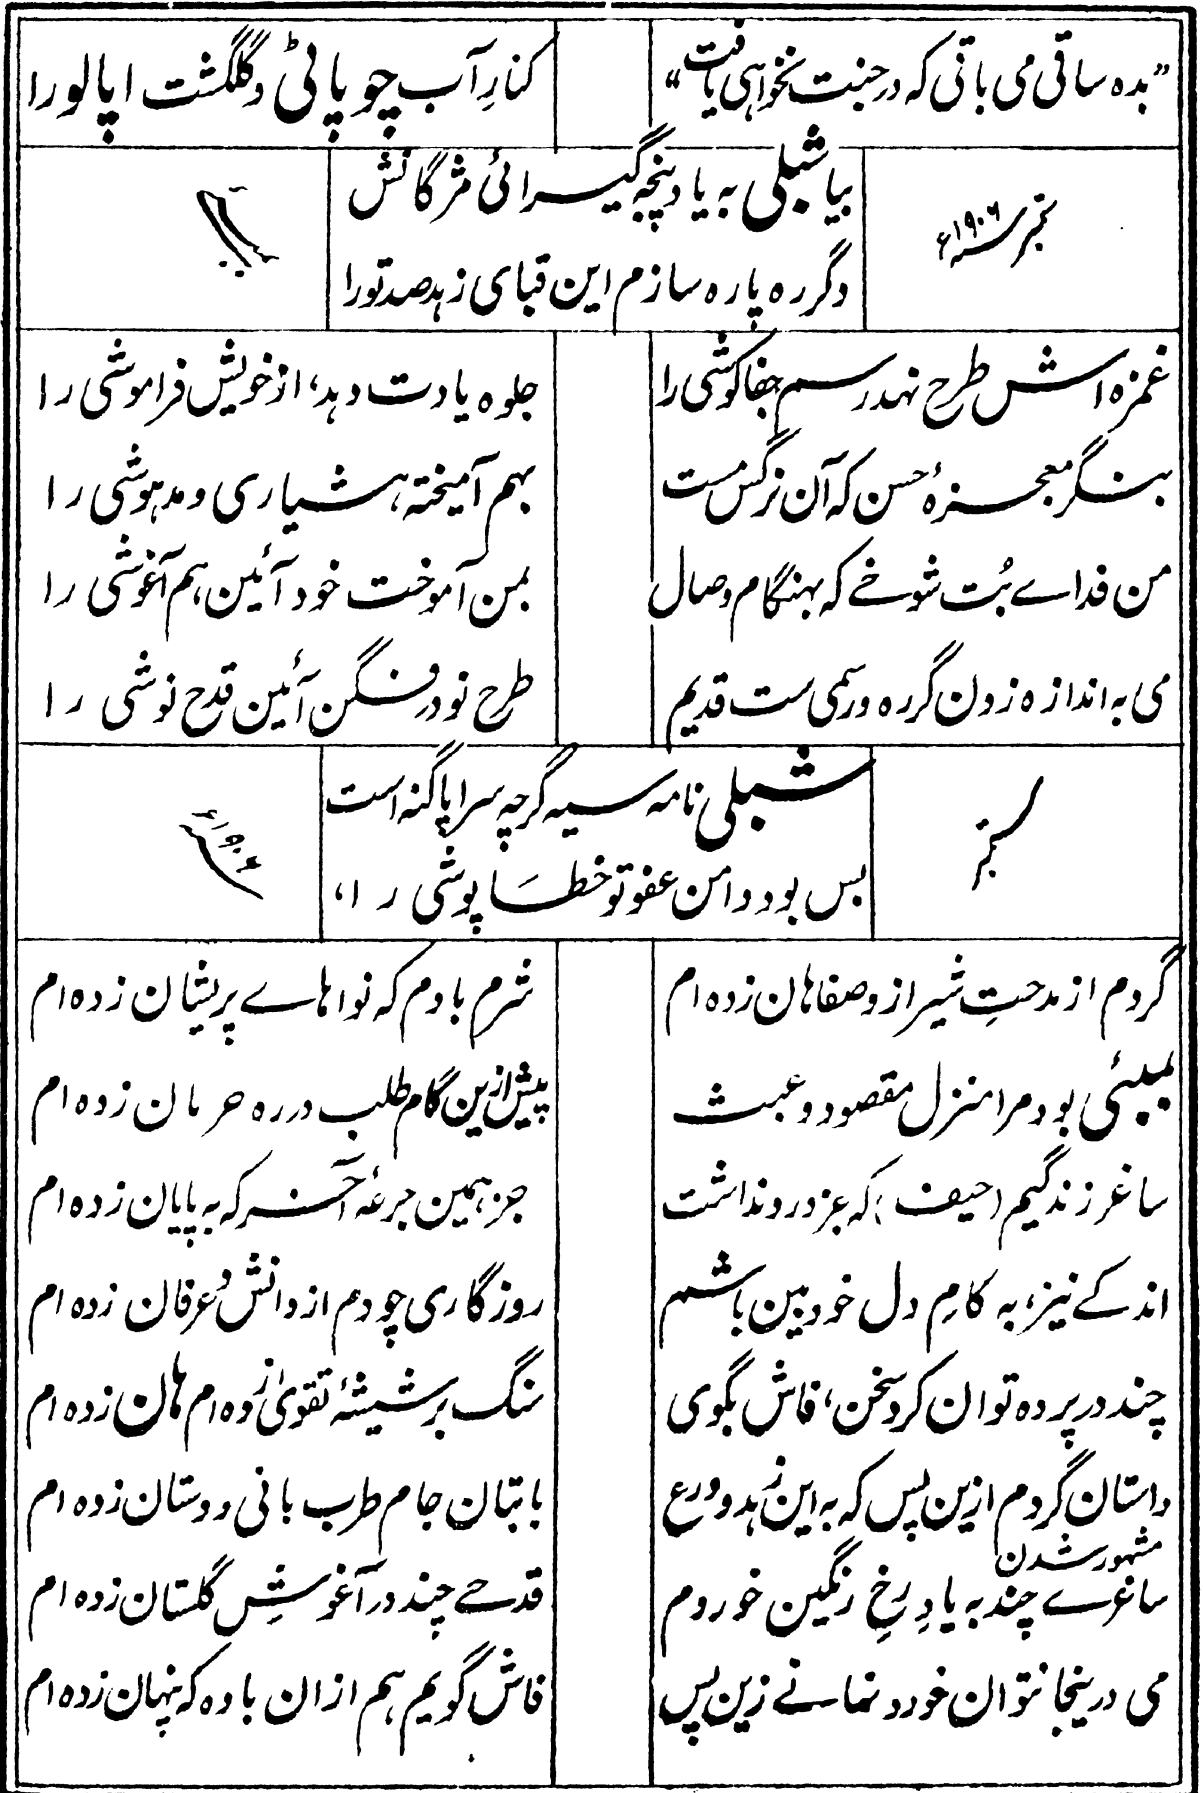 ”بدہ ساقی می باقی کہ در جنت نخواہی یافت“ کنارِ آب چوپاٹی و گلگشت اپالو را
بیا شبلی بہ یاد پنجہ گیرائی مژگانش
نمبر سنہ ۱۹۰۶ء
دگر رہ پارہ سازم این قبای زہد صد تو را
غمزہ اش طرح نہد رسم جفا کوشی را جلوہ یادت دہد، از خویش فراموشی را
بنگر معجزۂ حسن کہ آن نرگس مست بہم آمیختہ ہشیاری و مدہوشی را
من فداے بُت شوخے کہ بہنگام وصال بمن آموخت خود آئین ہم آغوشی را
می بہ اندازہ زدن گر رہ و رسمی ست قدیم طرح نو در فگن آئین قدح نوشی را
شبلی نامہ سیہ گرچہ سراپا گنہ است
۱۹۰۶ء
بس بود دامن عفو تو خطا پوشی را،
گردم از مدحتِ شیراز و صفاہان زدہ ام شرم بادم کہ نواہاے پریشان زدہ ام
بمبئی بود مرا منزل مقصود و عبث پیش ازین گام طلب در رہ حرمان زدہ ام
ساغر زندگیم (حیف) کہ جز درد نداشت جز ہمین جرعۂ آخر کہ بہ پایان زدہ ام
اندکے نیز، بہ کامِ دل خود بین باشم روزگاری چو دم از دانش و عرفان زدہ ام
چند در پردہ توان کرد سخن، فاش بگوی سنگ بر شیشۂ تقویٰ زدہ ام ہان زدہ ام
داستان گردم ازین پس کہ بہ این زہد و ورع بابتان جام طرب بانی و دستان زدہ ام
مشہور شدن
ساغرے چند بہ یادِ رخِ رنگین خوردم قدحے چند در آغوشِ گلستان زدہ ام
می درینجا نتوان خورد نمانے زین پس فاش گویم ہم ازان بادہ کہ پنہان زدہ ام